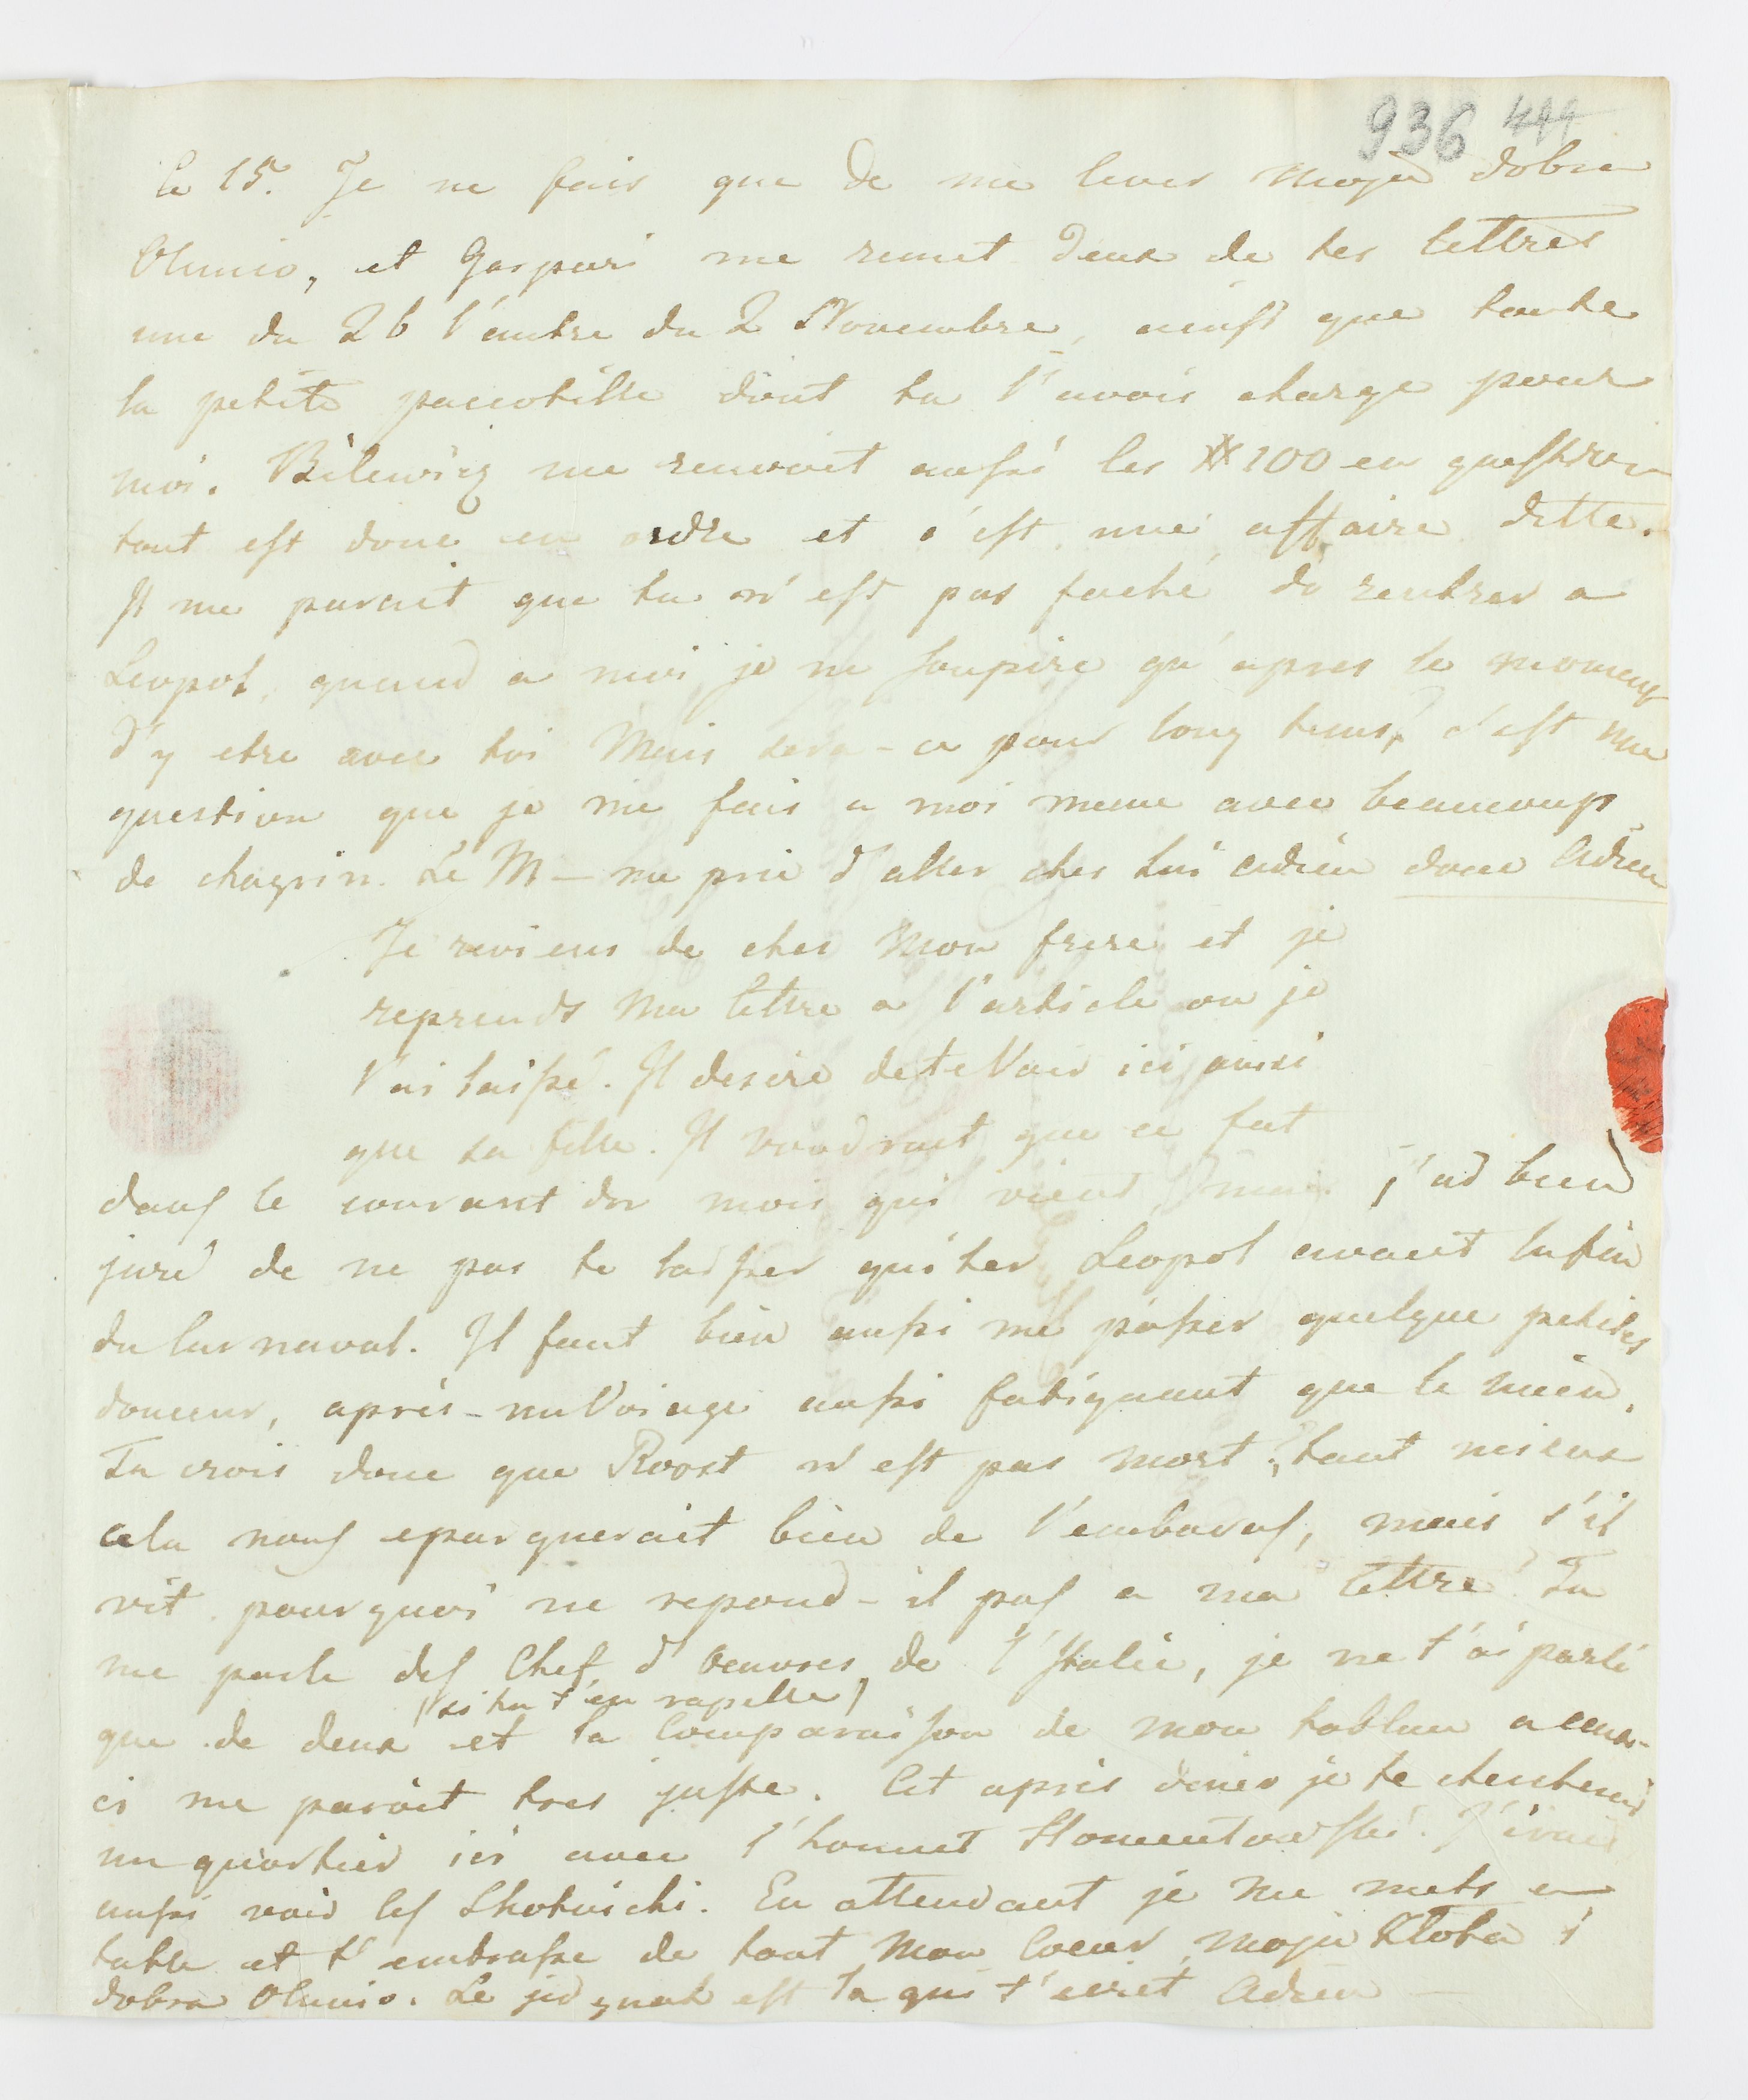 936 444
le 15. Je ne fais que de me lever moja dobra
Olunio, et Gaspari me remet deux de tes lettres
une du 26 l'autre du 2 Novembre, ainsi que toute
la petite pacotille dont tu l'avois charge pour
moi. Bilewicz me renvoit aussi les # 100 en question
tout est donc en ordre et c'est une affaire dette.
Il me parait que tu n'est pas faché de rentrer a
Leopol, quand a moi je ne soupire qu'apres le moment
d'y etre avec toi Mais sera-ce pour long tems, c'est une
question que je me fais a moi meme avec beaucoup
de chagrin. Le M— me prie d'aller ches lui adieu donc Adieu
Je reviens de ches mon frere et je
reprends ma lettre a l'article ou je
l'ai laissé. Il desire de te Voir ici ainsi
que sa fille. Il voudrait que ce fut
dans le courant du mois qui vient mais j'ai bien
juré de ne pas te laisser quiter Leopol avant la fin
du Carnaval. Il faut bien aussi me passer quelque petites
douceur, après un Voiage aussi fatiguant que le mien.
Tu crois donc que Roost n'est pas mort, tant mieux
cela nous eparguerait bien de l'embaras, mais s'il
vit pourquoi ne repond-il pas a ma lettre? Tu
me parle des Chef d'oeuvres de l'Italie, je ne t'ai parlé
(si tu t'en rapelle)
que de deux et la Comparaison de mon tableau a ceux-
ci me paroit tres juste. Cet après diner je te chercherai
un quartier ici avec l'honnet Slomentowski. J'irai
aussi voir les Skotnicki. En attendant je me mets a
table et t'embrasse de tout mon Coeur moja Zlota i
dobra Olunio. Le jid est la qui t'ecrit Adieu —